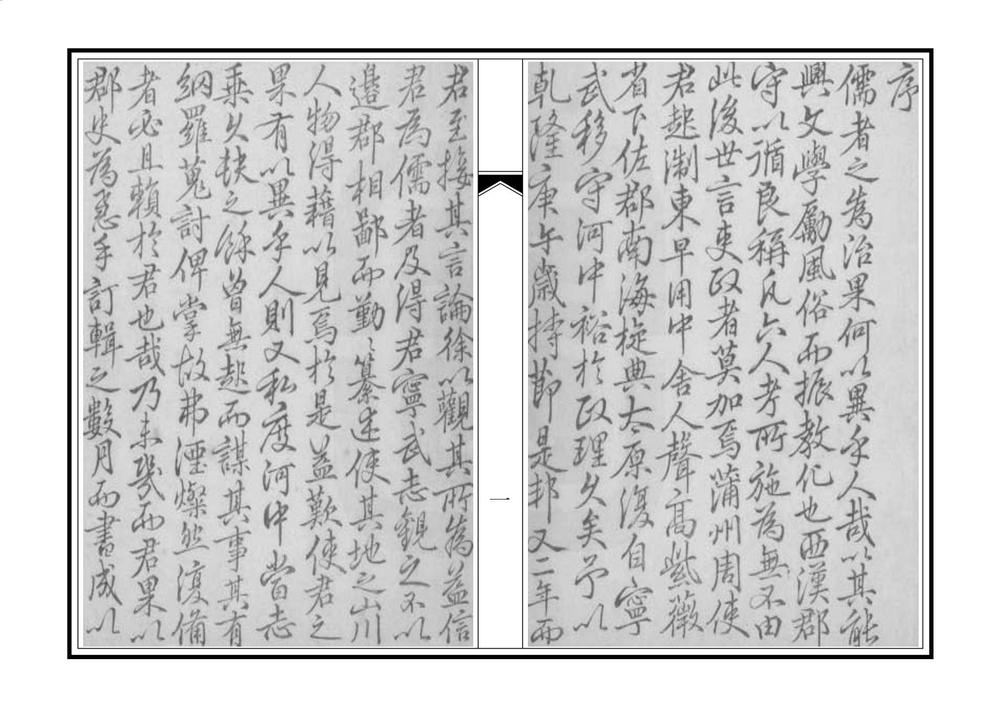 序
儒者之為治果何以異乎人哉以其能
興文學勵風俗而振教化也西漢郡
守以循良稱凡六人考所施為無不由
此後世言吏政者莫加焉蒲州周使
君起淛東早用中舍人聲高紫薇
省下佐郡南海旋典太原復自寧
武移守河中裕於政理久矣予以
乾隆庚午歲持節是邦又二年而
君至接其言論徐以觀其所為益信
君為儒者及得君寧武志觀之不以
邊郡相鄙而勤〻纂述使其地之山川
人物得藉以見焉於是益歎使君之
果有以異乎人則又私度河中當志
乘久軼之餘曾無起而謀其事其有
網羅蒐討俾掌故弗湮燦然復備
者必且賴於君也哉乃未幾而君果以
郡史為急手訂輯之數月而書成以
一